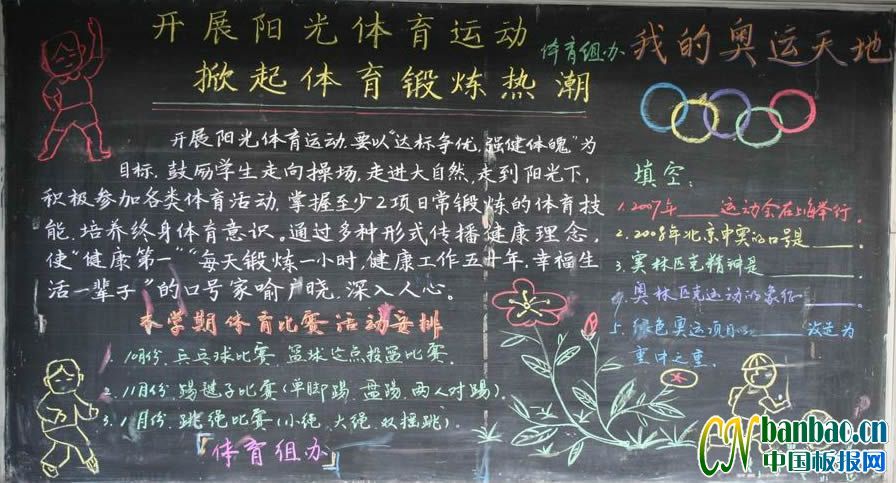 开展阳光体育运动
掀起体育锻炼热潮
体育组办
开展阳光体育运动,要以“达标争优,强健体魄”为
目标,鼓励学生走向操场,走进大自然,走到阳光下,
积极参加各类体育活动,掌握至少2项日常锻炼的体育技
能,培养终身体育意识。通过多种形式传播健康理念,
使“健康第一”“每天锻炼一小时,健康工作五十年,幸福生
活一辈子”的口号家喻户晓,深入人心。
本学期体育比赛活动安排
1.10月份,乒乓球比赛,篮球定点投篮比赛.
2.11月份,踢毽子比赛(单脚踢,盘踢,两人对踢).
3.1月份,跳绳比赛(小绳,大绳,双摇跳).
体育组办
我的奥运天地
填空:
1.2007年____运动会在上海举行.
2.2008年北京申奥的口号是____。
3.奥林匹克精神是____。
4.奥林匹克运动的象征____。
5.绿色奥运项目以____改造为
重中之重.
CN banbao.cn
中国板报网